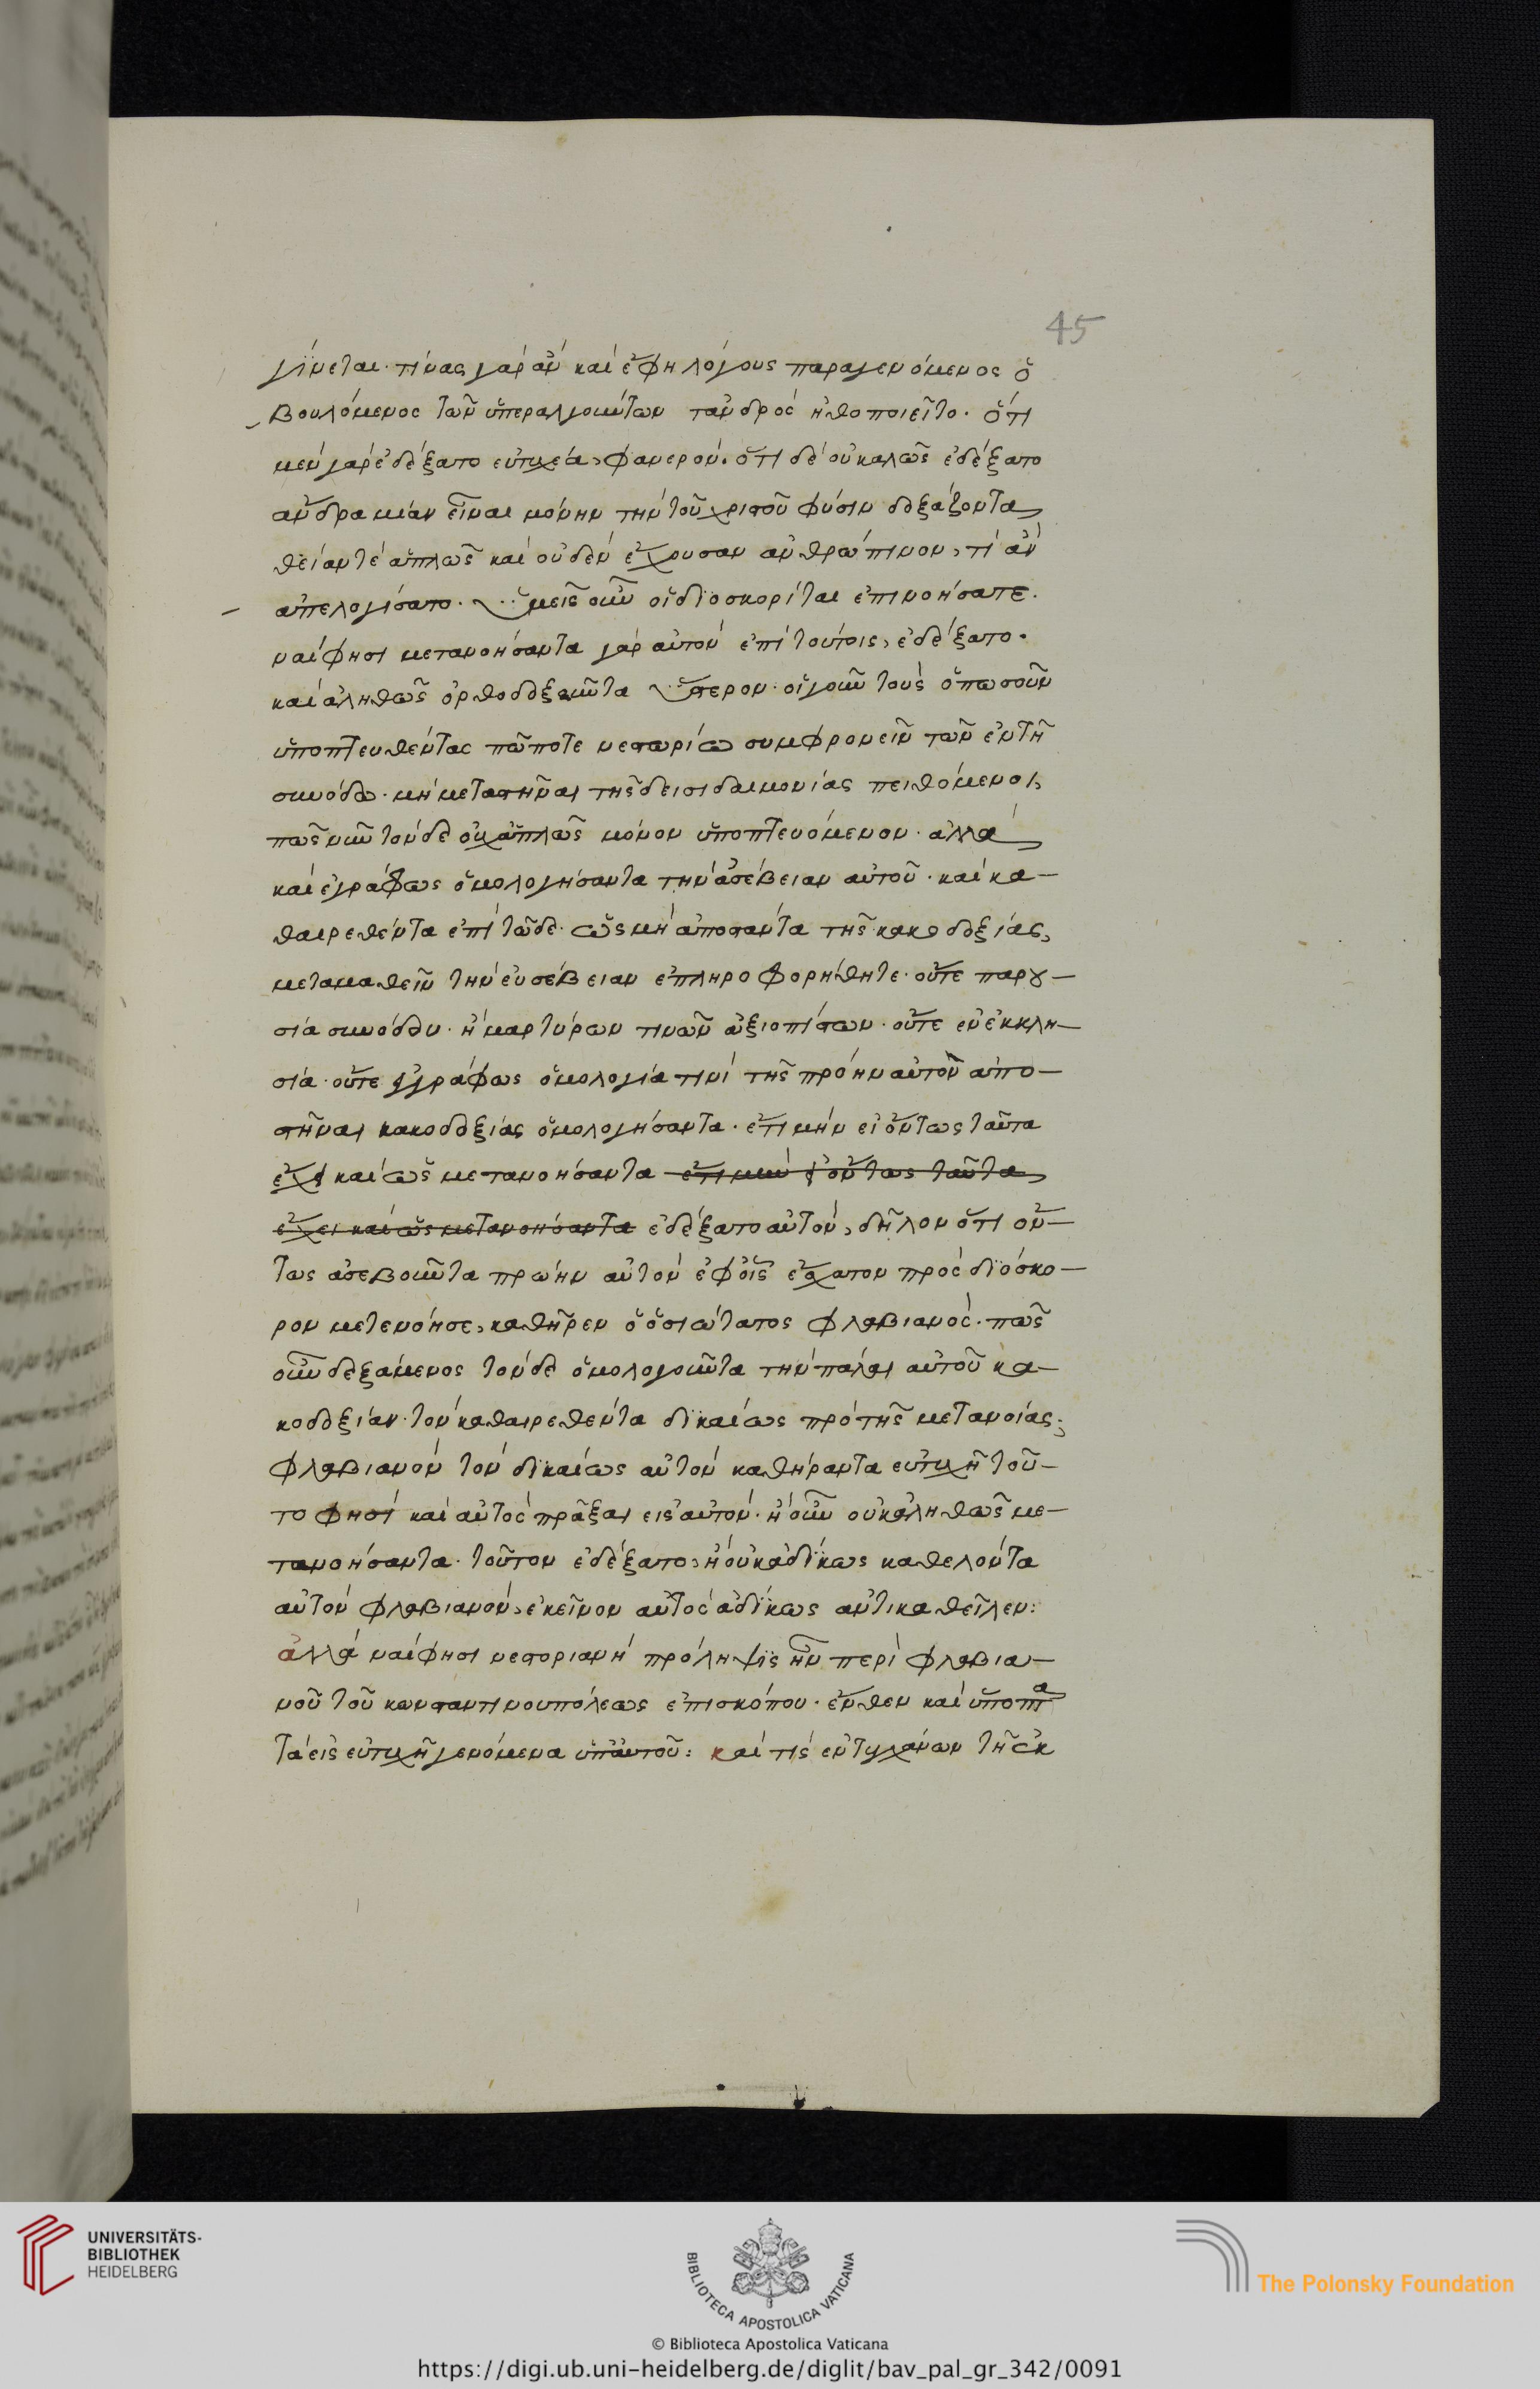 45
γίνεται· τίνας γὰρ ἂν καὶ ἔφη λόγους παραγενόμενος ὁ
βουλόμενος τῶν ὑπεραλγούντων τἀνδρὸς ἠθοποιεῖτο. ὅτι
μὲν γὰρ ἐδέξατο εὐτυχέα, φανερόν. ὅτι δὲ οὐ καλῶς ἐδέξατο
ἄνδρα μίαν εἶναι μόνην τὴν τοῦ χριστοῦ φύσιν δοξάζοντα
θείαν τὲ ἁπλῶς καὶ οὐδὲν ἔχουσαν ἀνθρώπινον, τί ἂν
ἀπελογίσατο. ὑμεῖς οὖν οἱ διοσκορίται ἐπινοήσατε.
ναί φησι μετανοήσαντα γὰρ αὐτὸν ἐπὶ τούτοις, ἐδέξατο.
καὶ ἀληθῶς ὀρθοδοξοῦντα ὕστερον· οἱ γοῦν τοὺς ὁπωσοῦν
ὑποπτευθέντας πώποτε νεστωρίω συμφρονεῖν τῶν ἐν τῇ
συνόδω· μὴ μεταστῆναι τῆς δεισιδαιμονίας πειθόμενοι,
πῶς νῦν τόνδε οὐχ ἁπλῶς μόνον ὑποπτευόμενον· ἀλλὰ
καὶ ἐγράφως ὁμολογήσαντα τὴν ἀσέβειαν αὐτοῦ· καὶ κα-
θαιρεθέντα ἐπὶ τῶδε· ὡς μὴ ἀποστάντα τῆς κακοδοξίας,
μεταμαθεῖν τὴν εὐσέβειαν ἐπληροφορήθητε· οὔτε παρου-
σία συνόδου· ἢ μαρτύρων τινῶν ἀξιοπίστων· οὔτε ἐν ἐκκλη-
σία· οὔτε ἐγγράφως ὁμολογία τινὶ τῆς πρόην αὐτὸν ἀπο-
στῆναι κακοδοξίας ὁμολογήσαντα· ἔτι μὴν εἰ ὄντως ταῦτα
ἔχει καὶ ὡς μετανοήσαντα ἔτι μὴν εἰ ὄντως ταῦτα
ἔχει καὶ ὡς μετανοήσαντα ἐδέξατο αὐτὸν, δῆλον ὅτι ὄν-
τως ἀσεβοῦντα πρώην αὐτὸν ἐφ' οἷς ἔσχατον πρὸς διόσκο-
ρον μετενόησε, καθῆρεν ὁ ὁσιώτατος φλαβιανός. πῶς
οὖν δεξάμενος τόνδε ὁμολογοῦντα τὴν πάλαι αὐτοῦ κα-
κοδοξίαν· τὸν καθαιρεθέντα δικαίως πρὸ τῆς μετανοίας;
φλαβιανὸν τὸν δικαίως αὐτὸν καθήραντα εὐτυχῆ τοῦ-
το φησὶ καὶ αὐτὸς πρᾶξαι εἰς αὐτόν· ἢ οὖν οὐκ ἀληθῶς με-
τανοήσαντα· τοῦτον ἐδέξατο, ἢ οὐκ ἀδίκως καθελόντα
αὐτὸν φλαβιανὸν, ἐκεῖνον αὐτὸς ἀδίκως ἀντικαθεῖλεν:
ἀλλὰ ναί φησι νεστοριανὴ πρόληψις ἦν περὶ φλαβια-
νοῦ τοῦ κωνσταντινουπόλεως ἐπισκόπου· ἔνθεν καὶ ὕποπτα
τὰ εἰς εὐτυχῆ γενόμενα ὑπ' αὐτοῦ: καὶ τίς ἐντυχάνων τῇ ἐκ
UNIVERSITÄTS-
BIBLIOTHEK
HEIDELBERG
BIBLIOTECA APOSTOLICA VATICANA
The Polonsky Foundation
© Biblioteca Apostolica Vaticana
https://digi.ub.uni-heidelberg.de/diglit/bav_pal_gr_342/0091